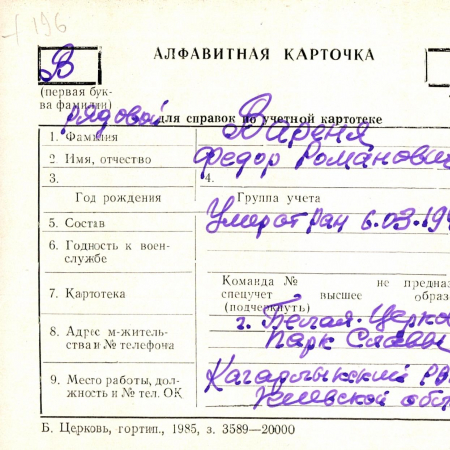 196
АЛФАВИТНАЯ КАРТОЧКА
В
(первая бук-
ва фамилии)
рядовой
для справок по учетной картотеке
1. Фамилия Вареня
2. Имя, отчество Федор Романович
3. 4.
Год рождения Группа учета
5. Состав Умер от ран 6.03.19
6. Годность к воен-
службе
Команда № не предназ
7. Картотека спецучет высшее образ
(подчеркнуть)
г. Белая-Церко
8. Адрес м-житель-
ства и № телефона Парк Славы
9. Место работы, дол- Кагарлыкский РВ
жность и № тел. ОК Киевской обл
Б. Церковь, гортип., 1985, з. 3589—20000